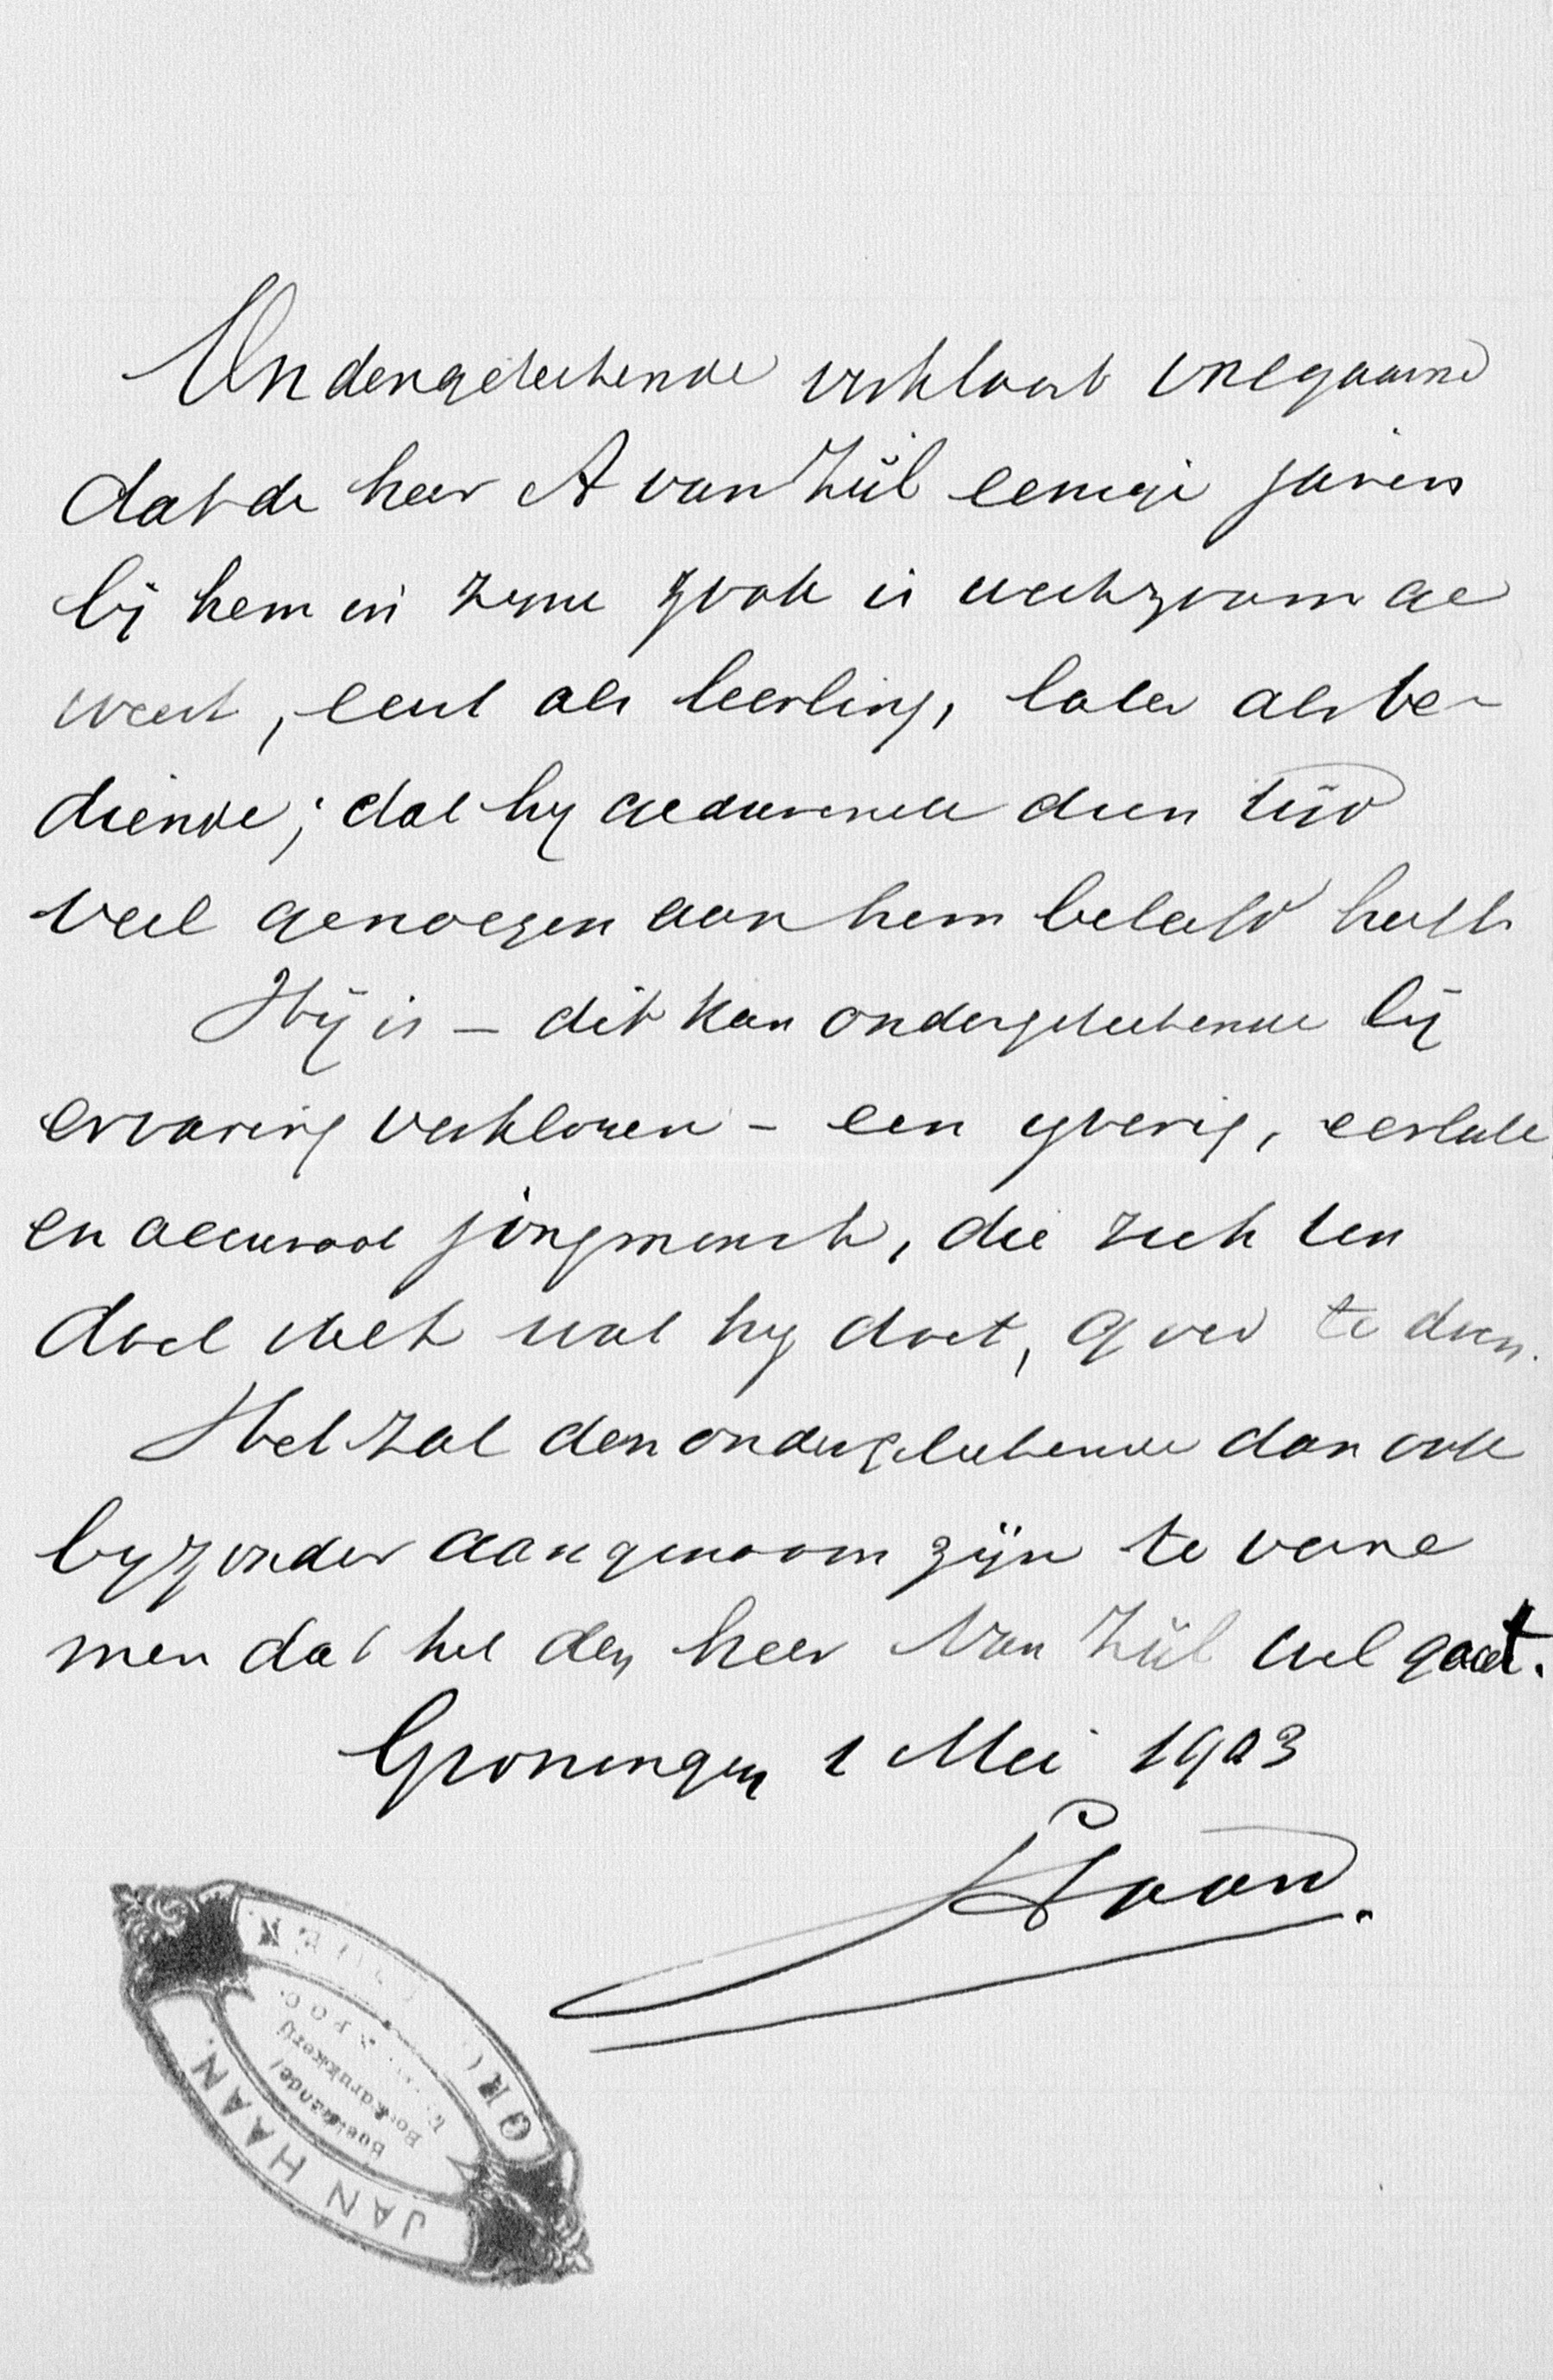 Ondergeteekende verklaart volgaarne
dat de heer A van Zijl eenige jaren
bij hem in zijne zaak is werkzaam ge
weest, eerst als leerling, later als be-
diende; dat hij gedurende dien tijd
veel genoegen aan hem beleefd heeft
Hij is - dit kan ondergeteekende bij
ervaring verklaren - een ijverig, eerlijk
en accuraat jongmensch, die zich ten
doel stelt wat hij doet, goed te doen.
Het zal den ondergeteekende dan ook
bijzonder aangenaam zijn te verne
men dat het den heer Van Zijl wel gaat.
Groningen 1 Mei 1903
JHaan.
JAN HAAN.
Boekhandel
Boekdrukkerij